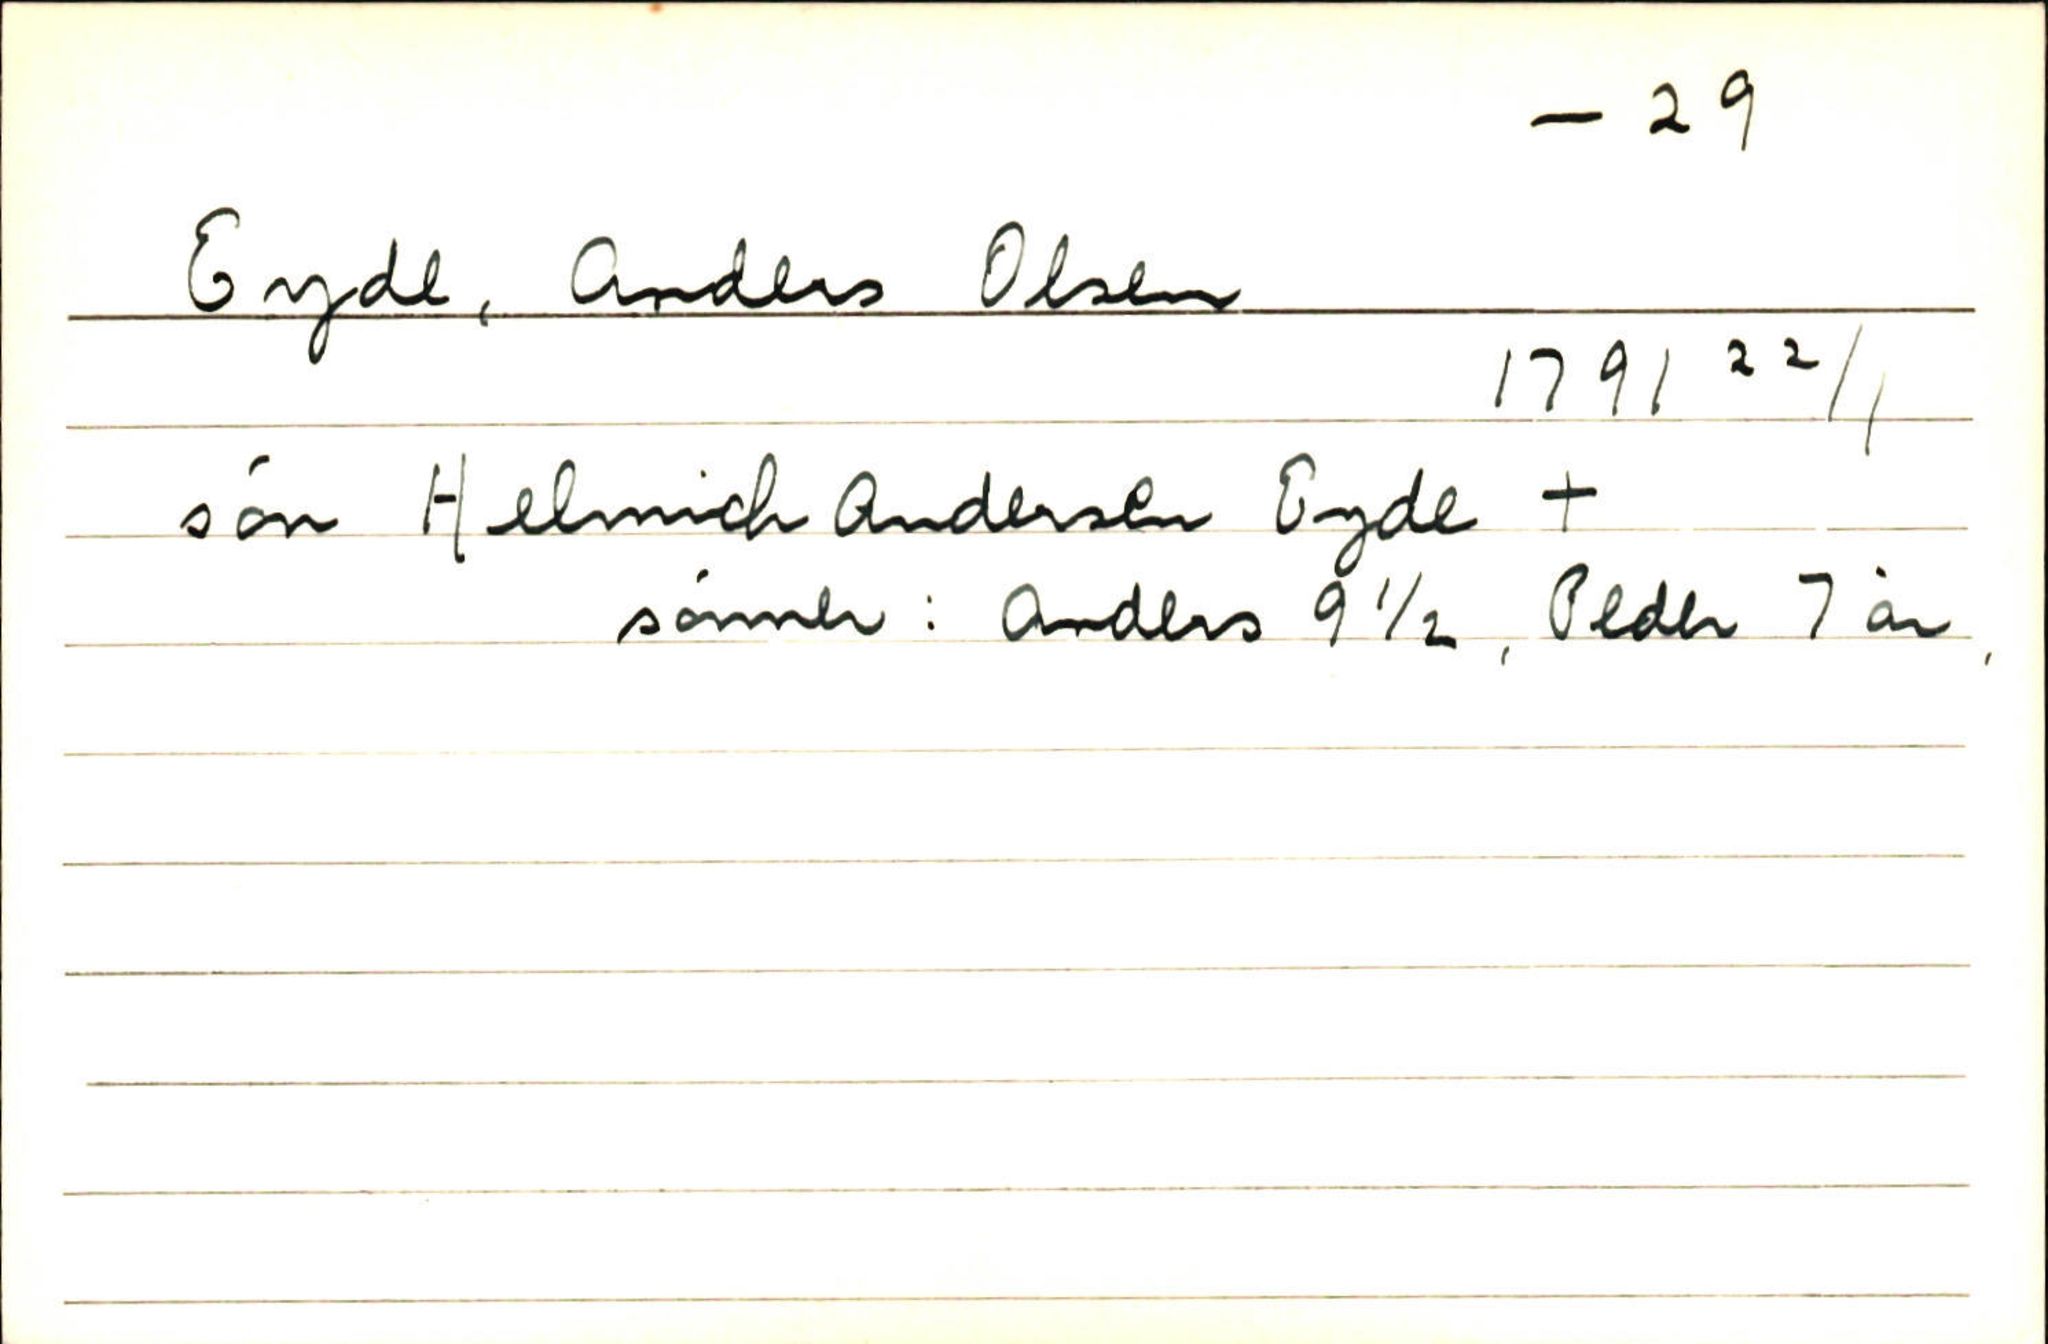 — 29
Eyde, Anders Olsen
1791 22/1
són Helmich Andersen Eyde +
sónner : Anders 9 1/2, Peder 7 år,